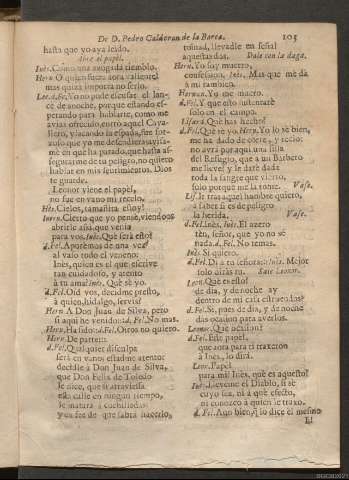 De D. Pedro Calderon de la Barca. 105
hasta que yo aya leìdo.
Abre el papel.
Inès. Como una azogada tiemblo.
Hern. O quien fuera aora valiente!
mas quiza importa no serlo.
Leo. A Fè, Yo no pude escusar el lan-
ce de anoche, porque estando es-
perando para hablarte, como me
avias ofrecido, entrò aquel Cava-
llero, y sacando la espada, fue for-
zoso que yo me defendiera: avisa-
me en què ha parado, que hasta as-
segurarme de tu peligro, no quiero
hablar en mis sentimientos. Dios
te guarde.
Leonor viene el papel,
no fue en vano mi recelo.
Hès. Cielos, tamañita estoy!
Hern. Cierto que yo pensè, viendoos
abrirle assi, que venia
para vos. Inès. Què serà esto?
d. Fel. Apuremos de una vez
al vaso todo el veneno:
Inès, quien es el que escrive
tan cuidadoso, y atento
à tu ama? Inès. Què sè yo.
d. Fel. Oid vos, decidme presto,
à quien, hidalgo, servis?
Hern. A Don Juan de Silva, pero
si aqui he venido: d. Fel. No mas.
Hern. Ha sido: d. Fel. Otros no quiero.
Hern. De parte:
d. Fel. Qualquier disculpa
serà en vano; estadme atento:
decidle à Don Juan de Silva,
que Don Felix de Toledo
le dice, que si atraviessa
esta calle en ningun tiempo,
le matarà à cuchilladas;
y en fee de que sabrà hacerlo,
tomad, llevadle en señal
aquestas dos. Dale con la daga.
Hern. Yo soy muerto,
confession. Inès. Mas que me dà
à mi tambien.
Hernan. Yo me muero.
d. Fel. Y que esto sustentarè
solo en el campo.
Lis. Què has hecho?
d. Fel. Què sè yo. Hern. Yo lo sè bien,
me ha dado de corte, y recio:
no avrà por aqui una silla
del Refugio, que à un Barbero
me lleve? y le darè dada
toda la sangre que vierto,
solo porque me la tome. Vase.
Lis. Ir tras aquel hombre quiero,
à saber si es de peligro
la herida. Vase.
d. Fel. Inès, Inès. El azero
tèn, señor, que yo no sè
nada. d. Fel. No temas.
Inès Si quiero.
d. Fel. Dì à tu señora: Inès. Mejor
solo diràs tu. Sale Leonor.
Leon. Què es esto?
de dia, y de noche ay
dentro de mi casa estruendos?
d. Fel. Sì, pues de dia, y de noche
dàs ocasion para averlos.
Leonor. Què ocasion?
d. Fel. Este papel,
que aora para ti traxeron
à Inès, lo dirà.
Leon. Papel
para mi? Inès, què es aquesto?
Inès. Lleveme el Diablo, si sè
cuyo sea, ni à què efecto,
ni conozco à quien le traxo.
d. Fel. Aun bien, q lo dice èl mesmo